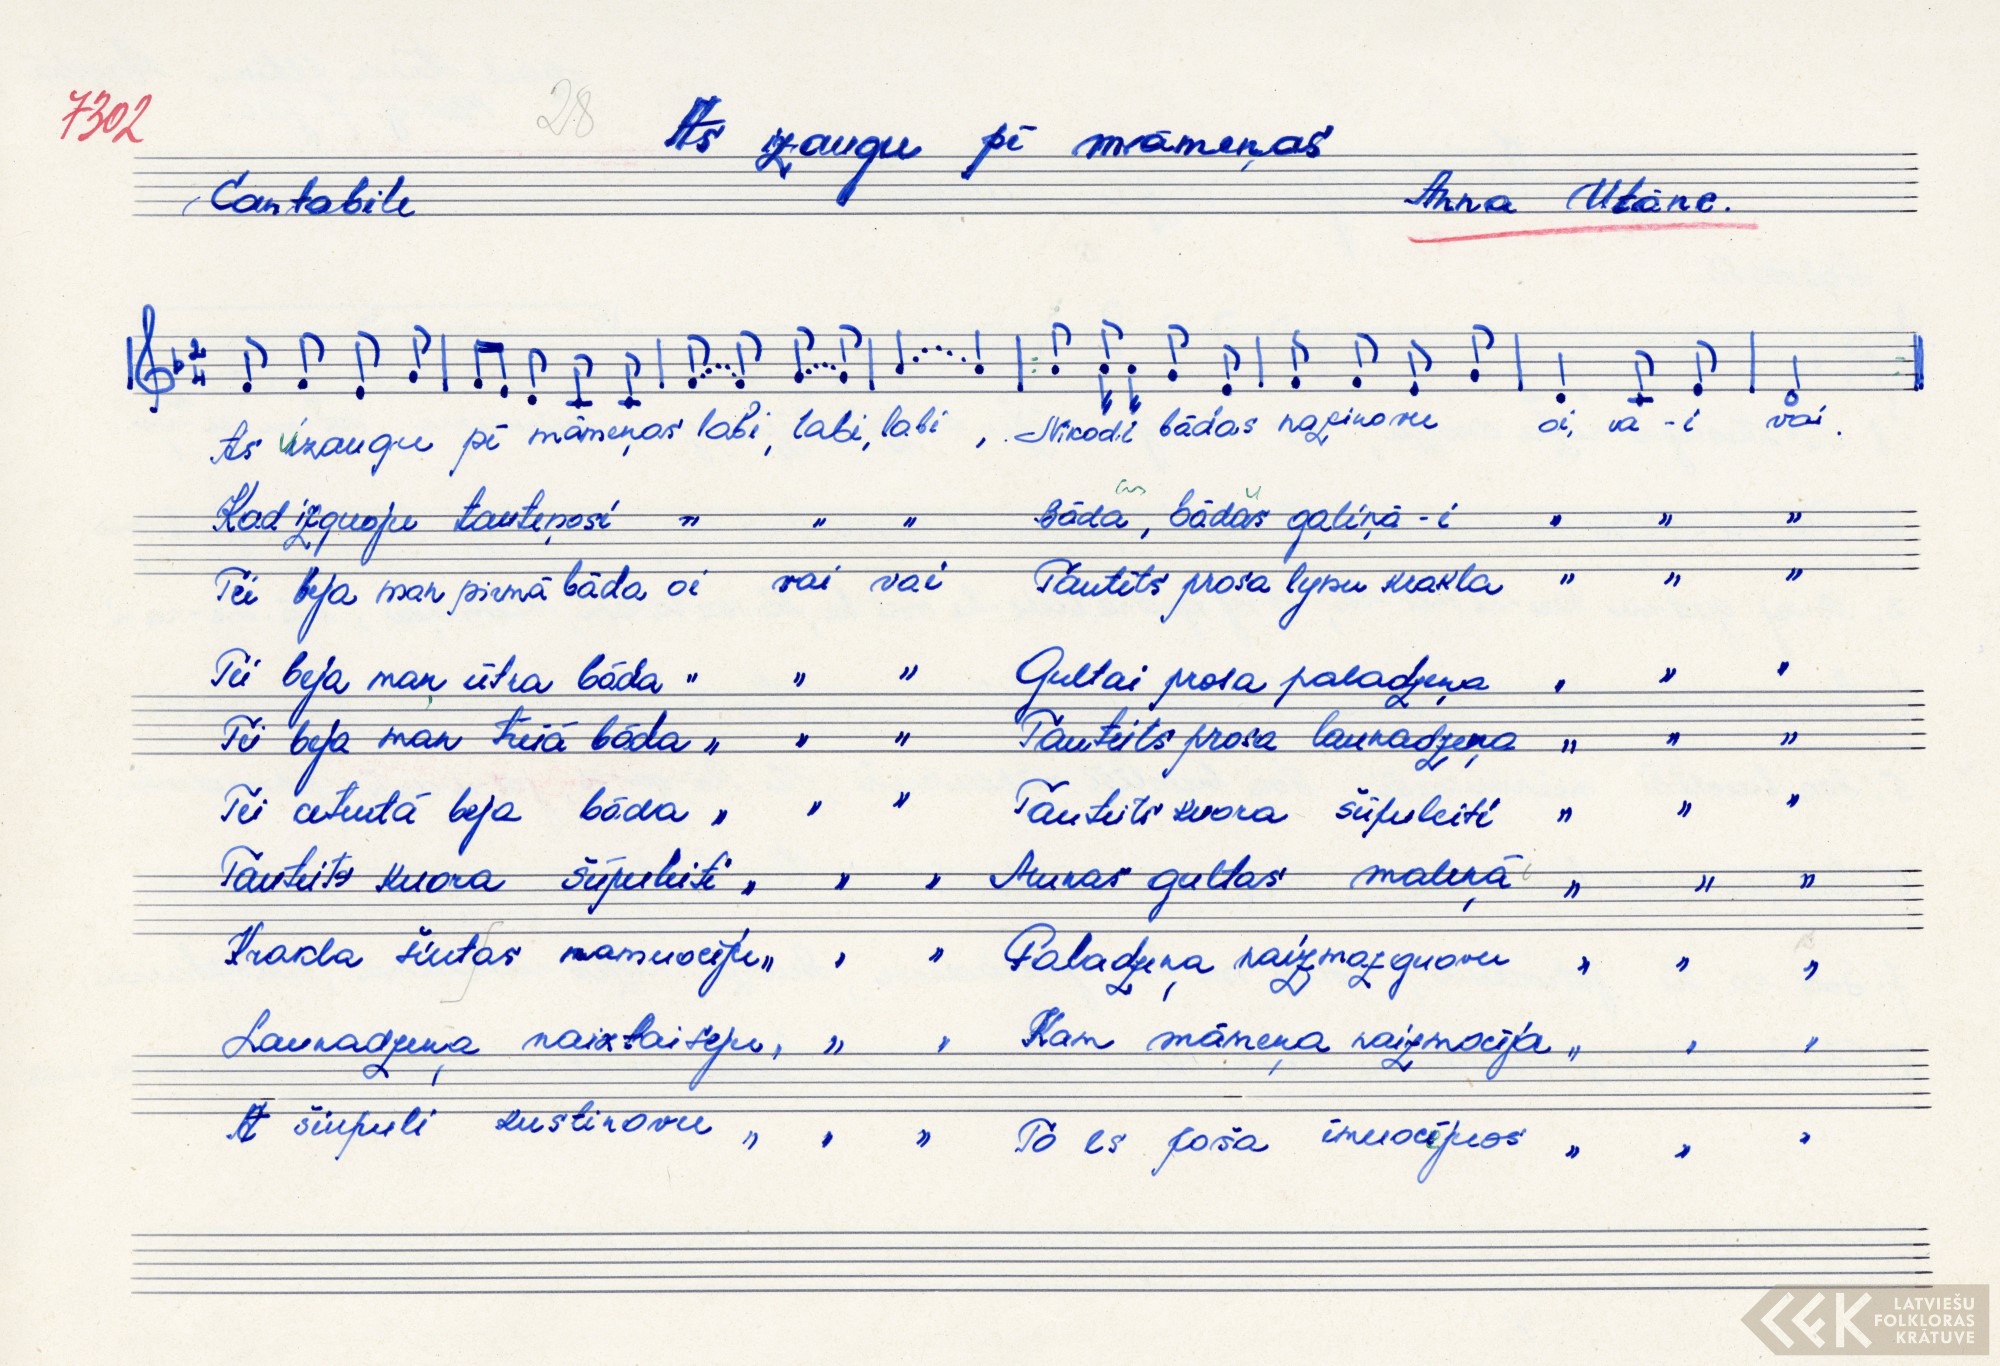 7302
28
As izaugu pī māmeņas
Cantabile
Anna Utāne.
As izaugu pī māmeņas labi, labi, labi, Nikodi bādas nazinovu oi, va-i vai.
Kad izguoju tauteņosi " " " Bāda, bādas galiņā-i " " "
Tei beja man pirmā bāda oi vai vai Tauteits prosa lynu krakla " " "
Tei beja man ūtra bāda " " " Gultai prosa paladzeņa " " "
Tei beja man trešā bāda " " " Tauteits prosa launadzeņa " " "
Tei cetuetā beja bāda " " " Tauteits kuora šiupuleiti " " "
Tauteits kuora šiupuleiti " " " Munas gultas maleņā " " "
Krakla šiutas namuocieju " " " Paladzeņa naizmozguovu " " "
Launadzeņa naiztaiseju " " " Kam māmeņa naizmocīja " " "
A šiupuli kustinovu " " " To es poša īmuocējuos " " "
LATVIEŠU
FOLKLORAS
KRĀTUVE